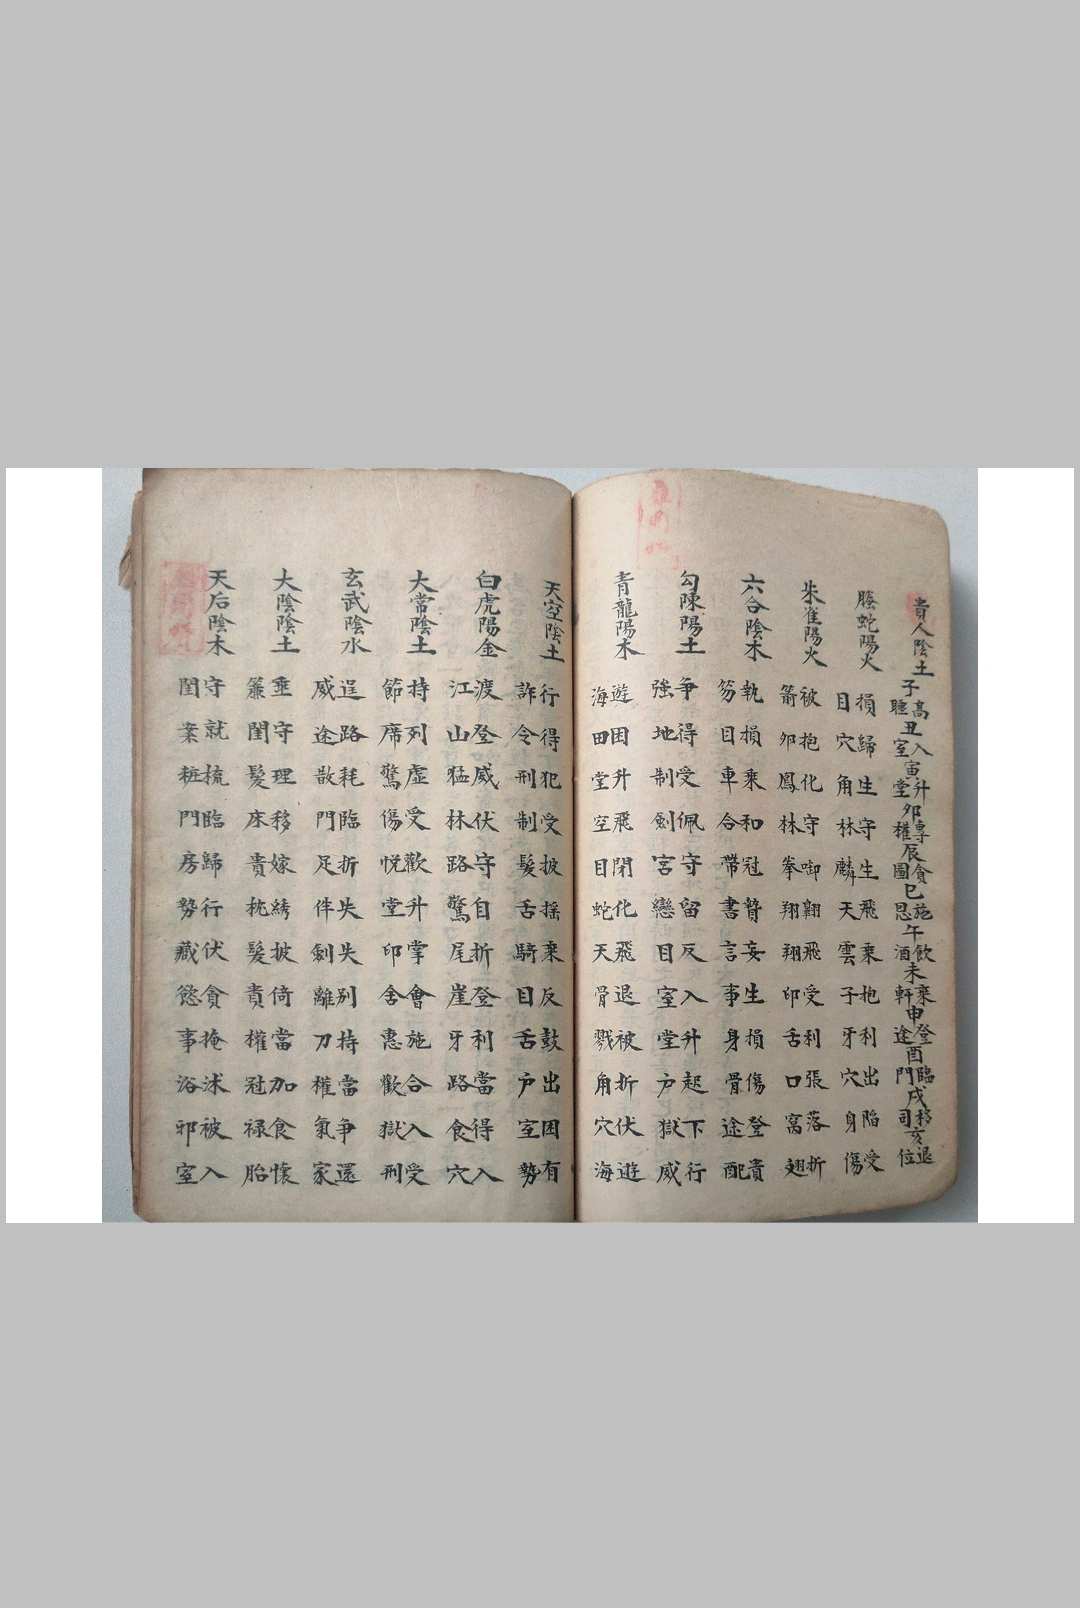 貴人陰土 子 高睡 丑 入室 寅 升堂 夘 專權 辰 貪圖 巳 施恩 午 飲酒 未 乘軒 申 登途 酉 臨門 戌 移司 亥 退位
螣蛇陽火 損目 歸穴 生角 守林 生麟 飛天 乘雲 抱子 利牙 出穴 陷身 受傷
朱雀陽火 被箭 抱夘 化鳳 守林 啣拳 翺翔 飛翔 受印 利舌 張口 落窩 折翅
六合陰木 執笏 損目 乘車 和合 冠帶 贊書 妄言 生事 損身 傷骨 登途 貴配
勾陳陽土 争強 得地 受制 佩劍 守宮 留戀 反目 入室 升堂 起戶 下獄 行威
青龍陽木 遊海 困田 升堂 飛空 閉目 化蛇 飛天 退骨 被戮 折角 伏穴 遊海
天空陰土 行詐 得令 犯刑 受制 披髮 搖舌 乘騎 反目 鼓舌 出戶 困室 有勢
白虎陽金 渡江 登山 威猛 伏林 守路 自驚 折尾 登崖 利牙 當路 得食 入穴
大常陰土 持節 列席 虛驚 受傷 歡悅 升堂 掌印 會舍 施惠 合歡 入獄 受刑
玄武陰水 逞威 路途 耗散 臨門 折足 失伴 失劍 別離 持刀 當權 争氣 還家
大陰陰土 垂簾 守閨 理髮 移床 嫁貴 綉枕 披髮 倚貴 當權 加冠 食祿 懷胎
天后陰木 守閨 就案 梳粧 臨門 歸房 行勢 伏藏 貪慾 掩事 沐浴 被邪 入室